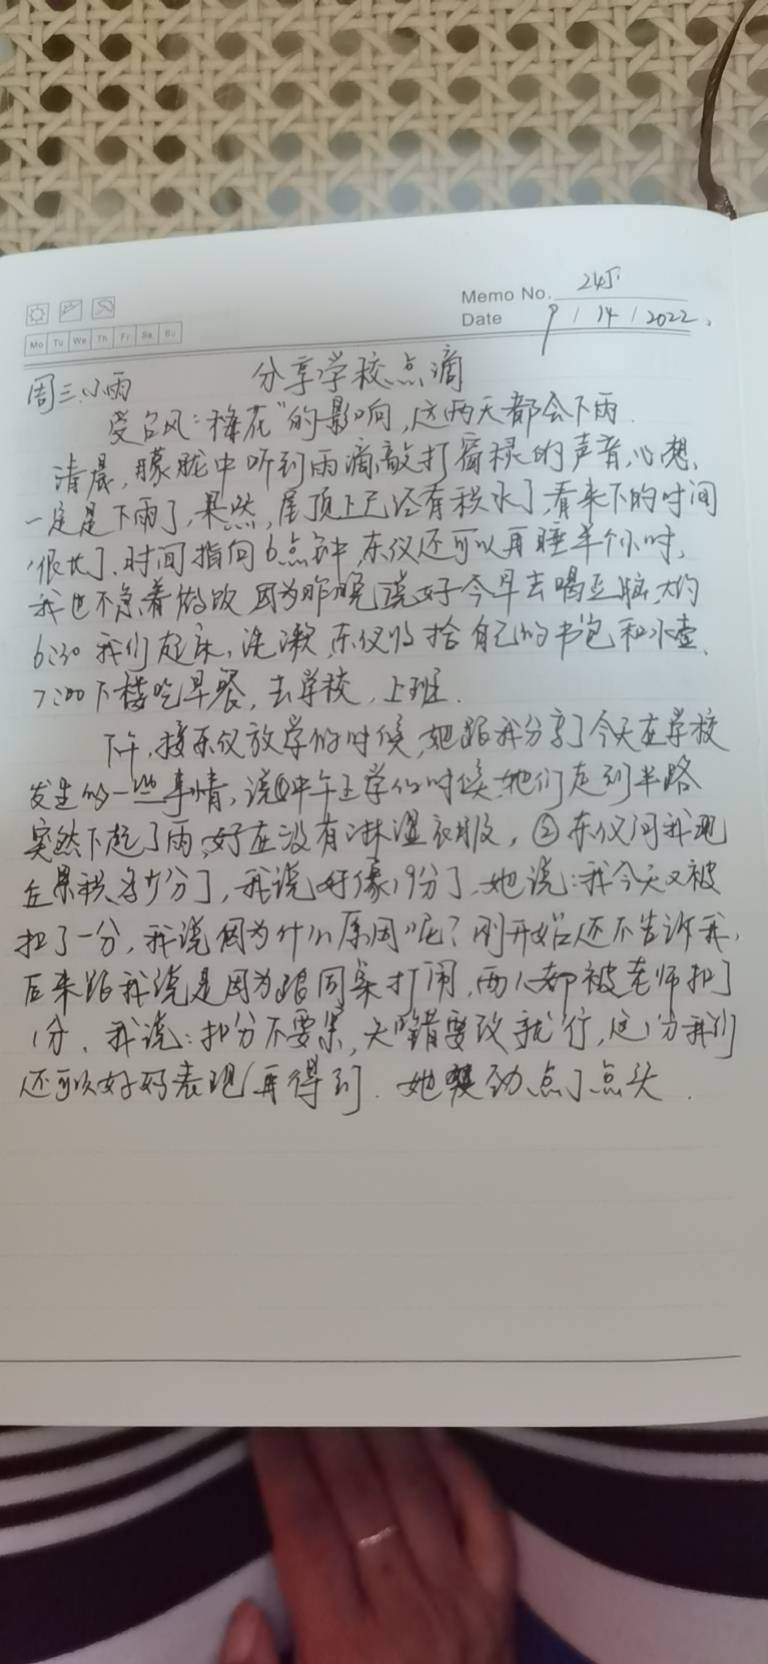 Memo No. 245
Mo Tu We Th Fr Sa Su
Date 9 / 14 / 2022.
周三.小雨 分享学校点滴
受台风:"梅花"的影响,这两天都会下雨.
清晨,朦胧中听到雨滴敲打窗棂的声音,心想,
一定是下雨了,果然,屋顶上已经有积水了,看来下的时间
很长了.时间指向6点钟,东仪还可以再睡半个小时,
我也不急着做饭 因为昨晚说好今早去喝豆脑,大约
6:30 我们起床,洗漱,东仪收拾自己的书包和水壶.
7:00下楼吃早餐,去学校,上班.
下午,接东仪放学的时候,她跟我分享了今天在学校
发生的一些事情,说①中午上学的时候,她们走到半路
突然下起了雨,好在没有淋湿衣服,②东仪问我现
在累积多少分了,我说好像19分了,她说:我今天又被
扣了一分,我说因为什么原因呢?刚开始还不告诉我,
后来跟我说是因为跟同桌打闹,两人都被老师扣了
1分.我说:扣分不要紧,错要改就行,这1分我们
还可以好好表现再得到.她使劲点了点头.